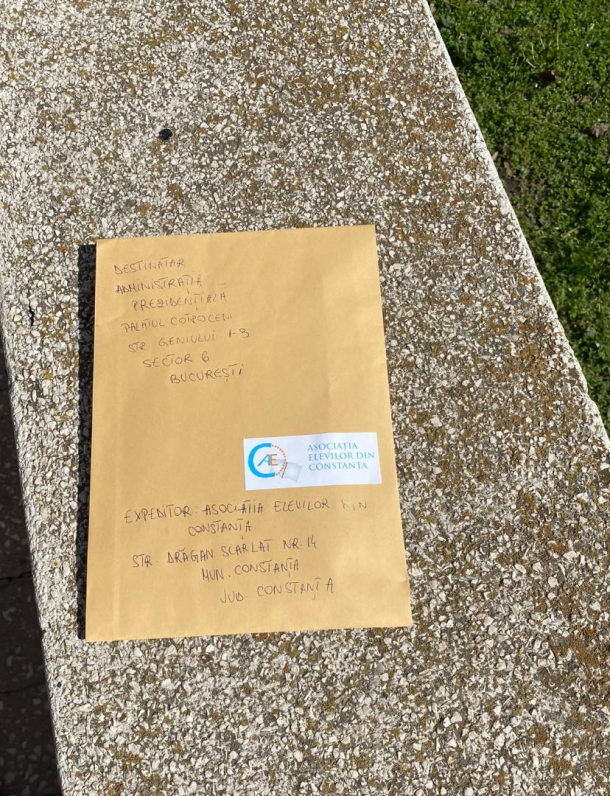 DESTINATAR
ADMINISTRAȚIA
PREZIDENȚIALĂ
PALATUL COTROCENI
STR. GENIULUI 1-3
SECTOR 6
BUCUREȘTI
AE
ASOCIAȚIA
ELEVILOR DIN
CONSTANȚA
EXPEDITOR: ASOCIAȚIA ELEVILOR DIN
CONSTANȚA
STR. DRĂGAN SCARLAT NR. 14
MUN. CONSTANȚA
JUD CONSTANȚA